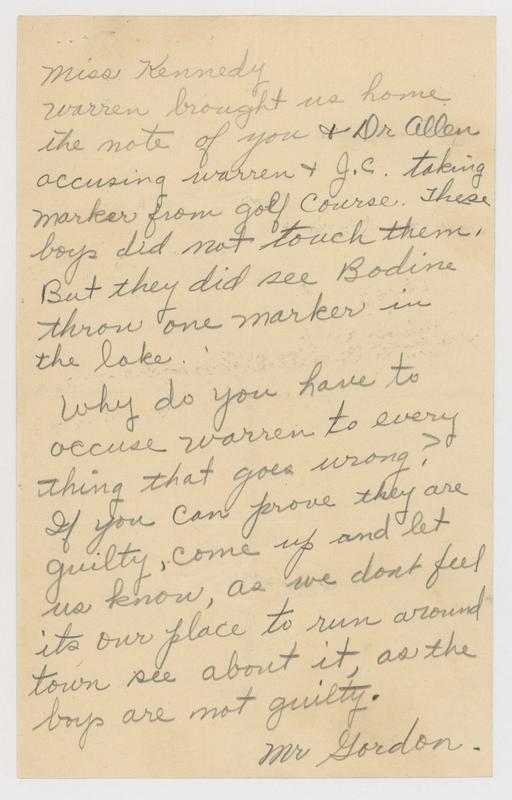 Miss Kennedy
Warren brought us home
the note of you & Dr Allen
accusing Warren & J.C. taking
marker from golf course. These
boys did not touch them.
But they did see Bodine
throw one marker in
the lake.
Why do you have to
accuse Warren to every
thing that goes wrong?
If you can prove they are
guilty, come up and let
us know, as we dont feel
its our place to run around
town see about it, as the
boys are not guilty.
Mr Gordon.